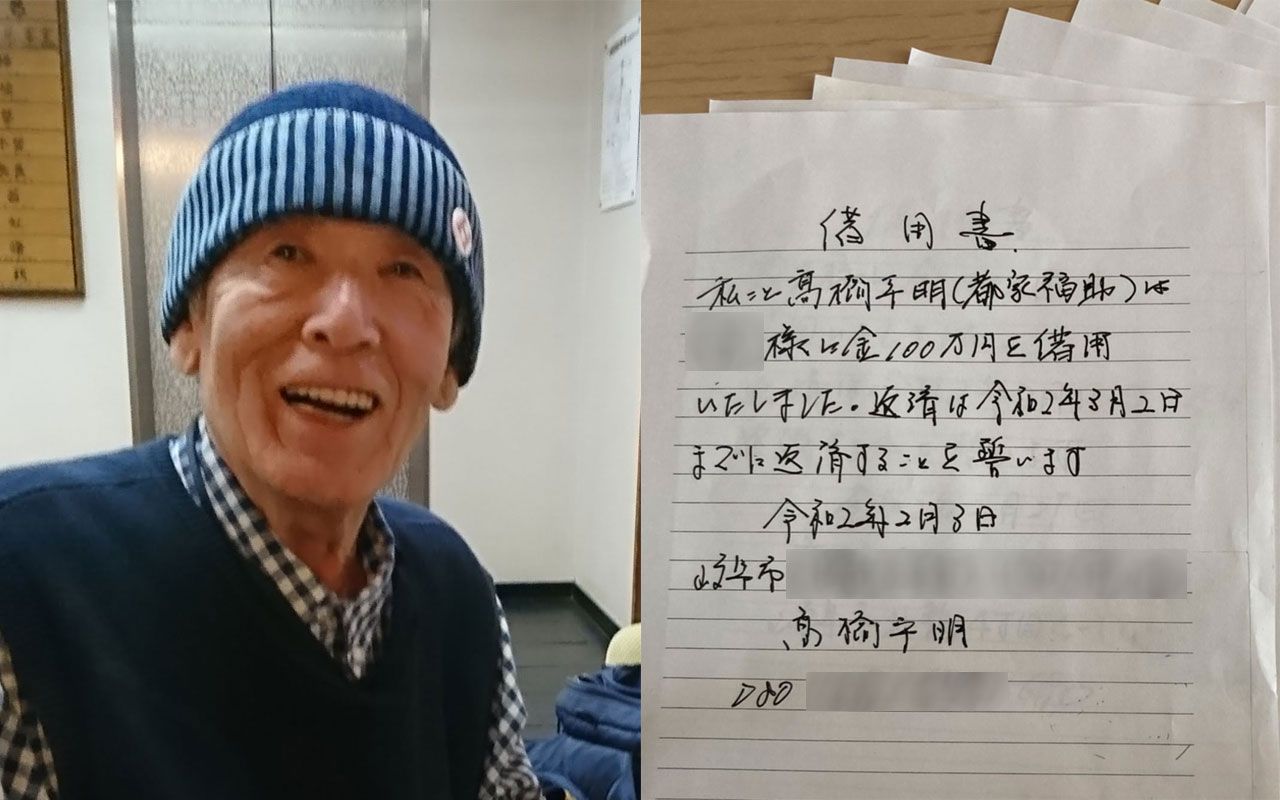 借用書
私こと高橋平明(都家福助)は
様に金100万円を借用
いたしました。返済は令和2年3月2日
までに返済することを誓います
令和2年2月3日
岐阜市
高橋平明